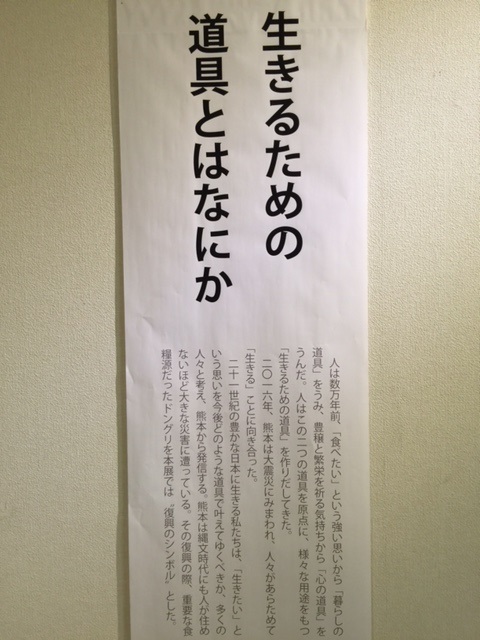 生きるための
道具とはなにか
人は数万年前、「食べたい」という強い思いから「暮らしの
道具」をうみ、豊穣と繁栄を祈る気持ちから「心の道具」を
うんだ。人はこの二つの道具を原点に、様々な用途をもつ
「生きるための道具」を作りだしてきた。
二〇一六年、熊本は大震災にみまわれ、人々があらためて
「生きる」ことに向き合った。
二十一世紀の豊かな日本に生きる私たちは、「生きたい」と
いう思いを今後どのような道具で叶えてゆくべきか、多くの
人々と考え、熊本から発信する。熊本は縄文時代にも人が住め
ないほど大きな災害に遭っている。その復興の際、重要な食
糧源だったドングリを本展では〝復興のシンボル〟とした。